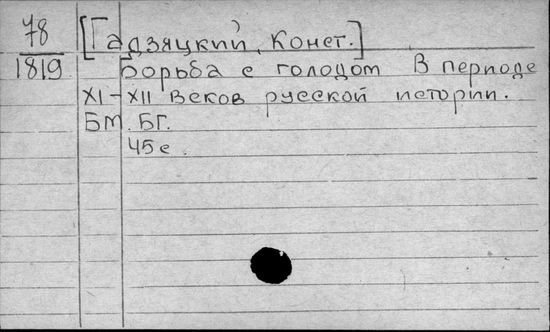 78
1819
[Гадзяцкий, Конст.]
Борьба с голодом в периоде
XI-XII веков русской истории.
Бм. БГ.
45с.